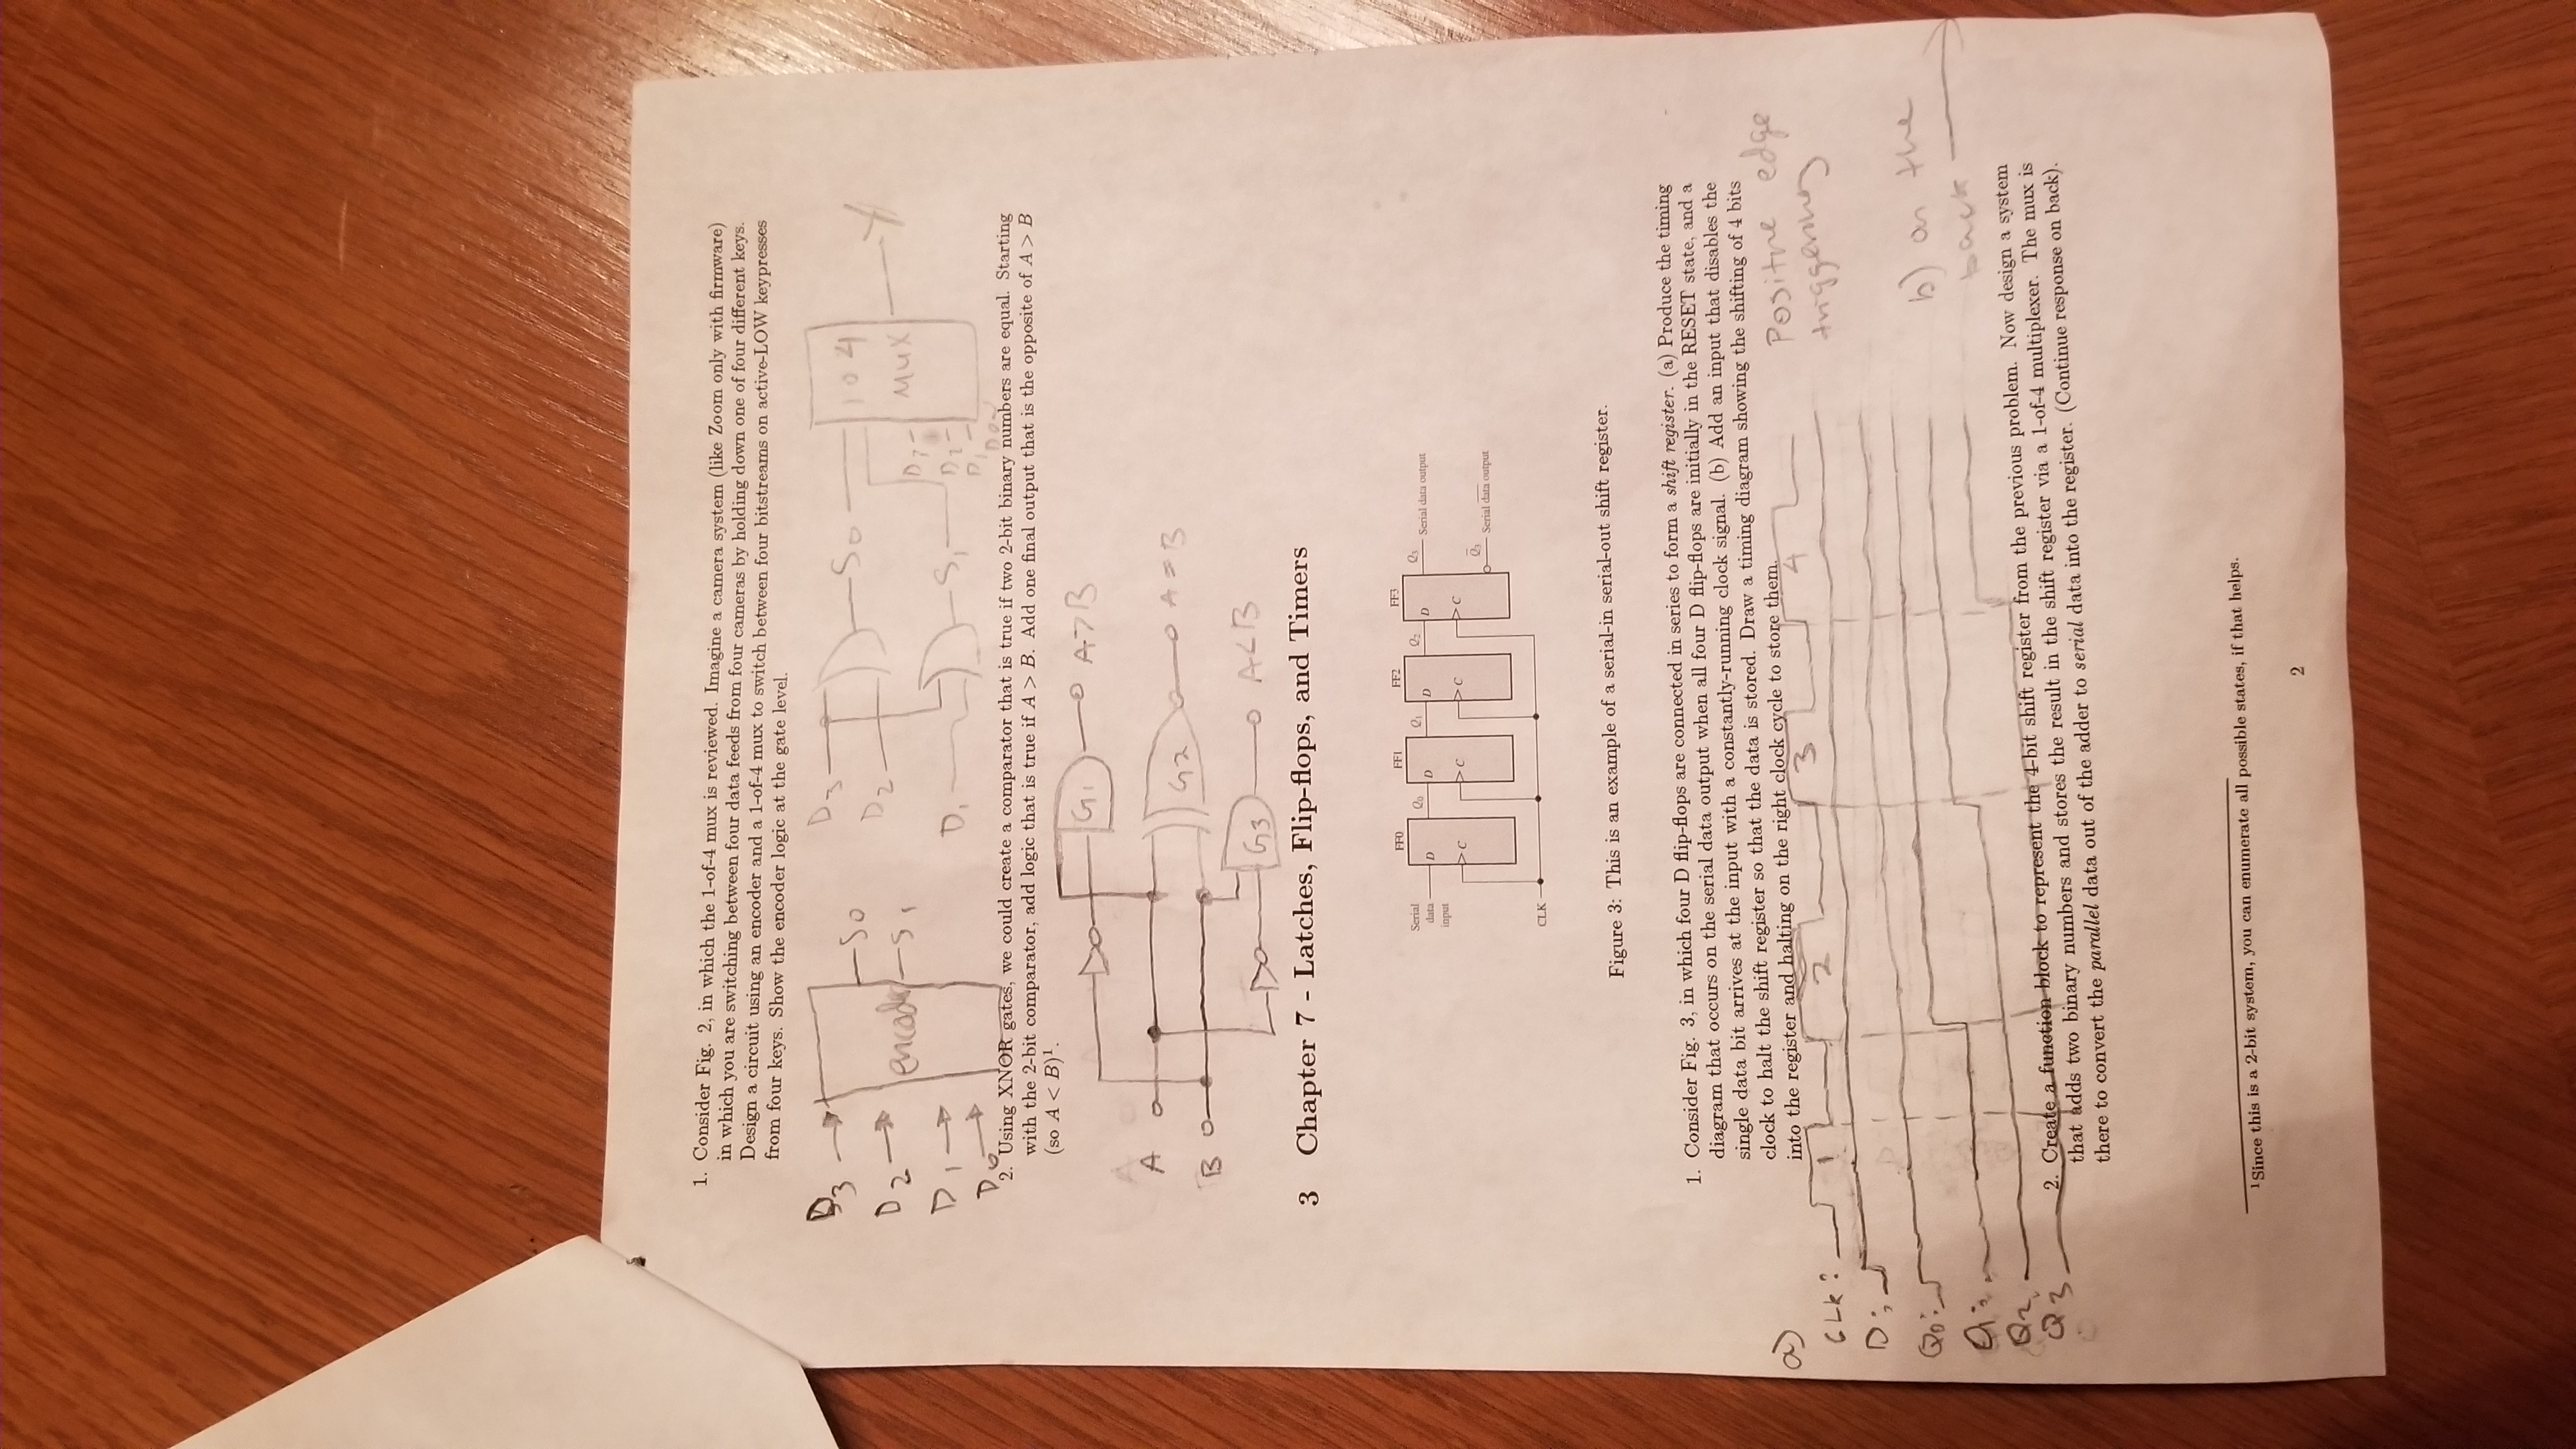 1. Consider Fig. 2, in which the 1-of-4 mux is reviewed. Imagine a camera system (like Zoom only with firmware)
in which you are switching between four data feeds from four cameras by holding down one of four different keys.
Design a circuit using an encoder and a 1-of-4 mux to switch between four bitstreams on active-LOW keypresses
from four keys. Show the encoder logic at the gate level.
D3
D2
D1
D0
encoder
S0
S1
D3
D2
D1
S0
S1
1 o 4
MUX
D2
D1
Y
2. Using XNOR gates, we could create a comparator that is true if two 2-bit binary numbers are equal. Starting
with the 2-bit comparator, add logic that is true if A > B. Add one final output that is the opposite of A > B
(so A < B)¹.
G1
A>B
A
B
G2
A=B
G3
A<B
3 Chapter 7 - Latches, Flip-flops, and Timers
FF0 FF1 FF2 FF3
Serial
data
input
D
C
Q0
D
C
Q1
D
C
Q2
D
C
Q3
Serial data output
Q̅3
Serial d̅a̅t̅a̅ output
CLK
Figure 3: This is an example of a serial-in serial-out shift register.
1. Consider Fig. 3, in which four D flip-flops are connected in series to form a shift register. (a) Produce the timing
diagram that occurs on the serial data output when all four D flip-flops are initially in the RESET state, and a
single data bit arrives at the input with a constantly-running clock signal. (b) Add an input that disables the
clock to halt the shift register so that the data is stored. Draw a timing diagram showing the shifting of 4 bits
into the register and halting on the right clock cycle to store them.
a)
CLK:
1 2 3 4
D:
Q0:
Q1:
Q2
Q3
Positive edge
triggering
b) on the
back
2. Create a function block to represent the 4-bit shift register from the previous problem. Now design a system
that adds two binary numbers and stores the result in the shift register via a 1-of-4 multiplexer. The mux is
there to convert the parallel data out of the adder to serial data into the register. (Continue response on back).
¹Since this is a 2-bit system, you can enumerate all possible states, if that helps.
2